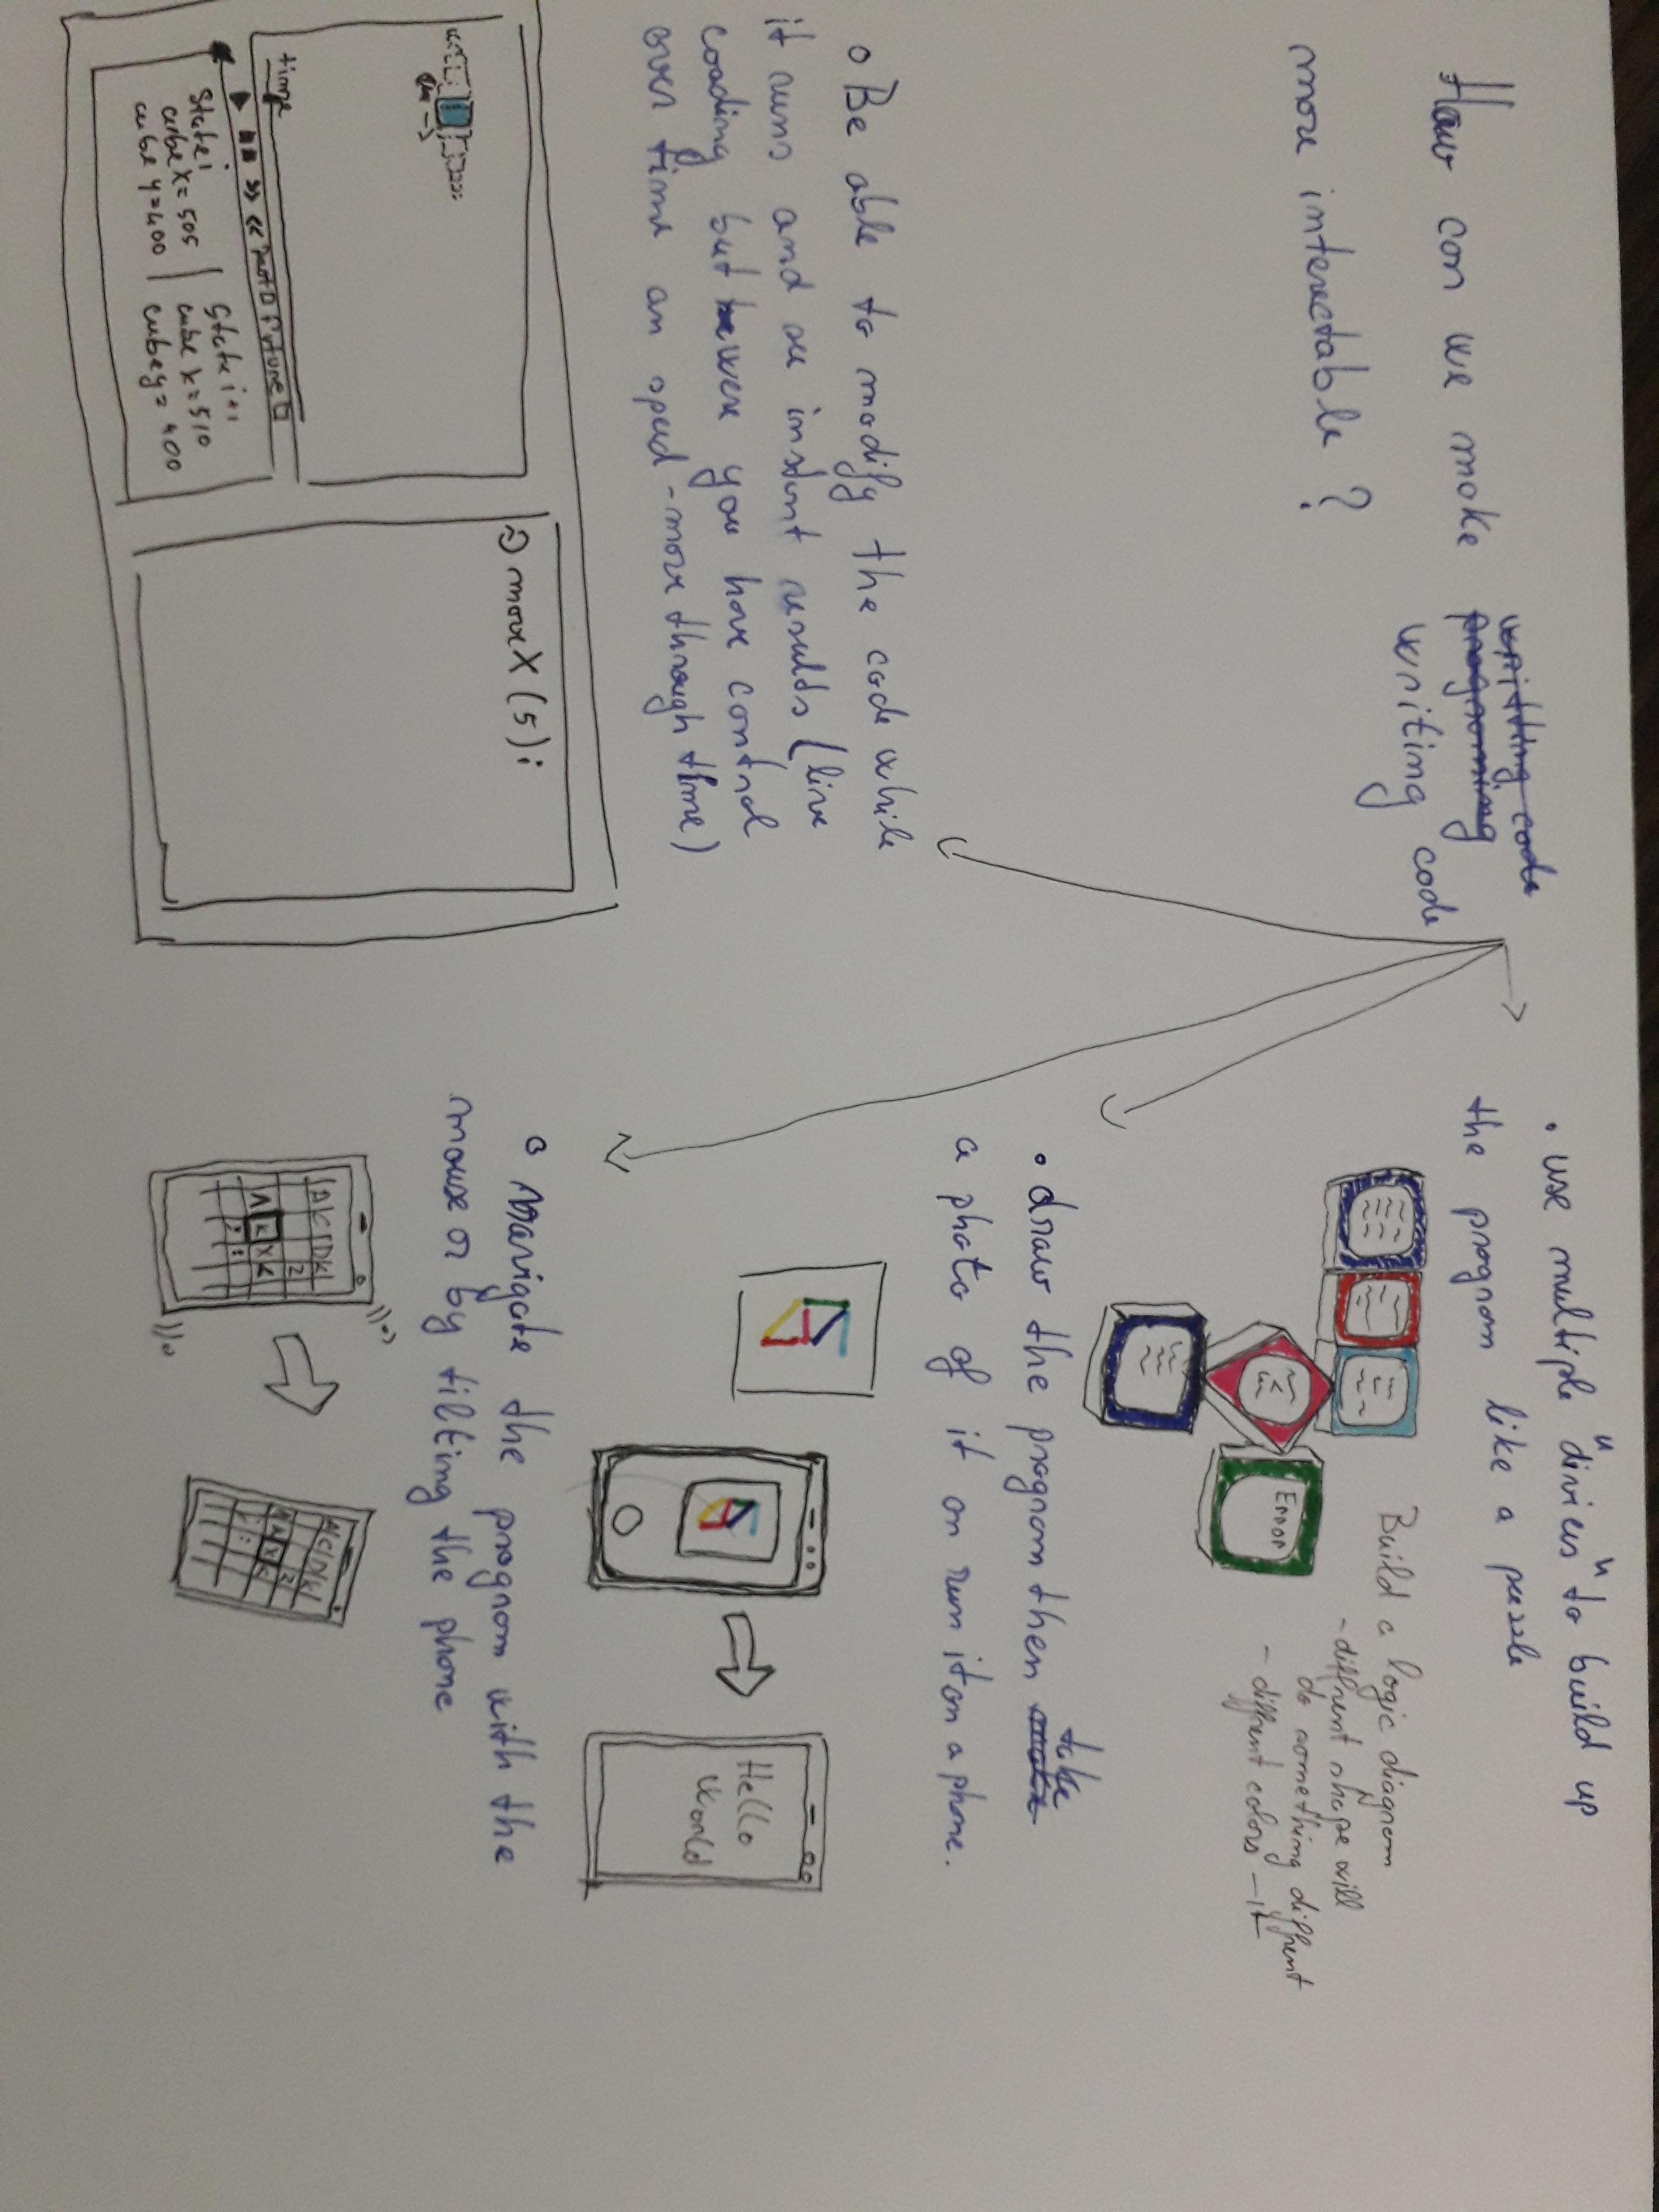 How can we make
writting code
programing
writing code
more interactable?
• use multiple "divies" to build up
the program like a puzzle
Build a logic diagram
- diffrent shape will
do something diffrent
- diffrent colors - it
Error
• draw the program then
take
a photo of it on run it on a phone.
Hello
World
o Navigate the program with the
mouse or by tilting the phone
o Be able to modify the code while
it runs and se instant results (live
coading but were you have control
over time an speed - move through time)
time
State i
cube x = 505
cube y = 400
State i+1
cube x = 510
cube y = 400
moveX (5);